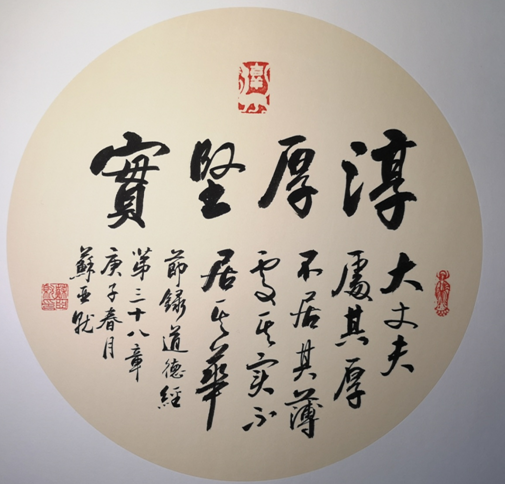 淳厚堅實
大丈夫
處其厚
不居其薄
處其实不
居其華
節錄道德經
第三十八章
庚子春月
蘇亚